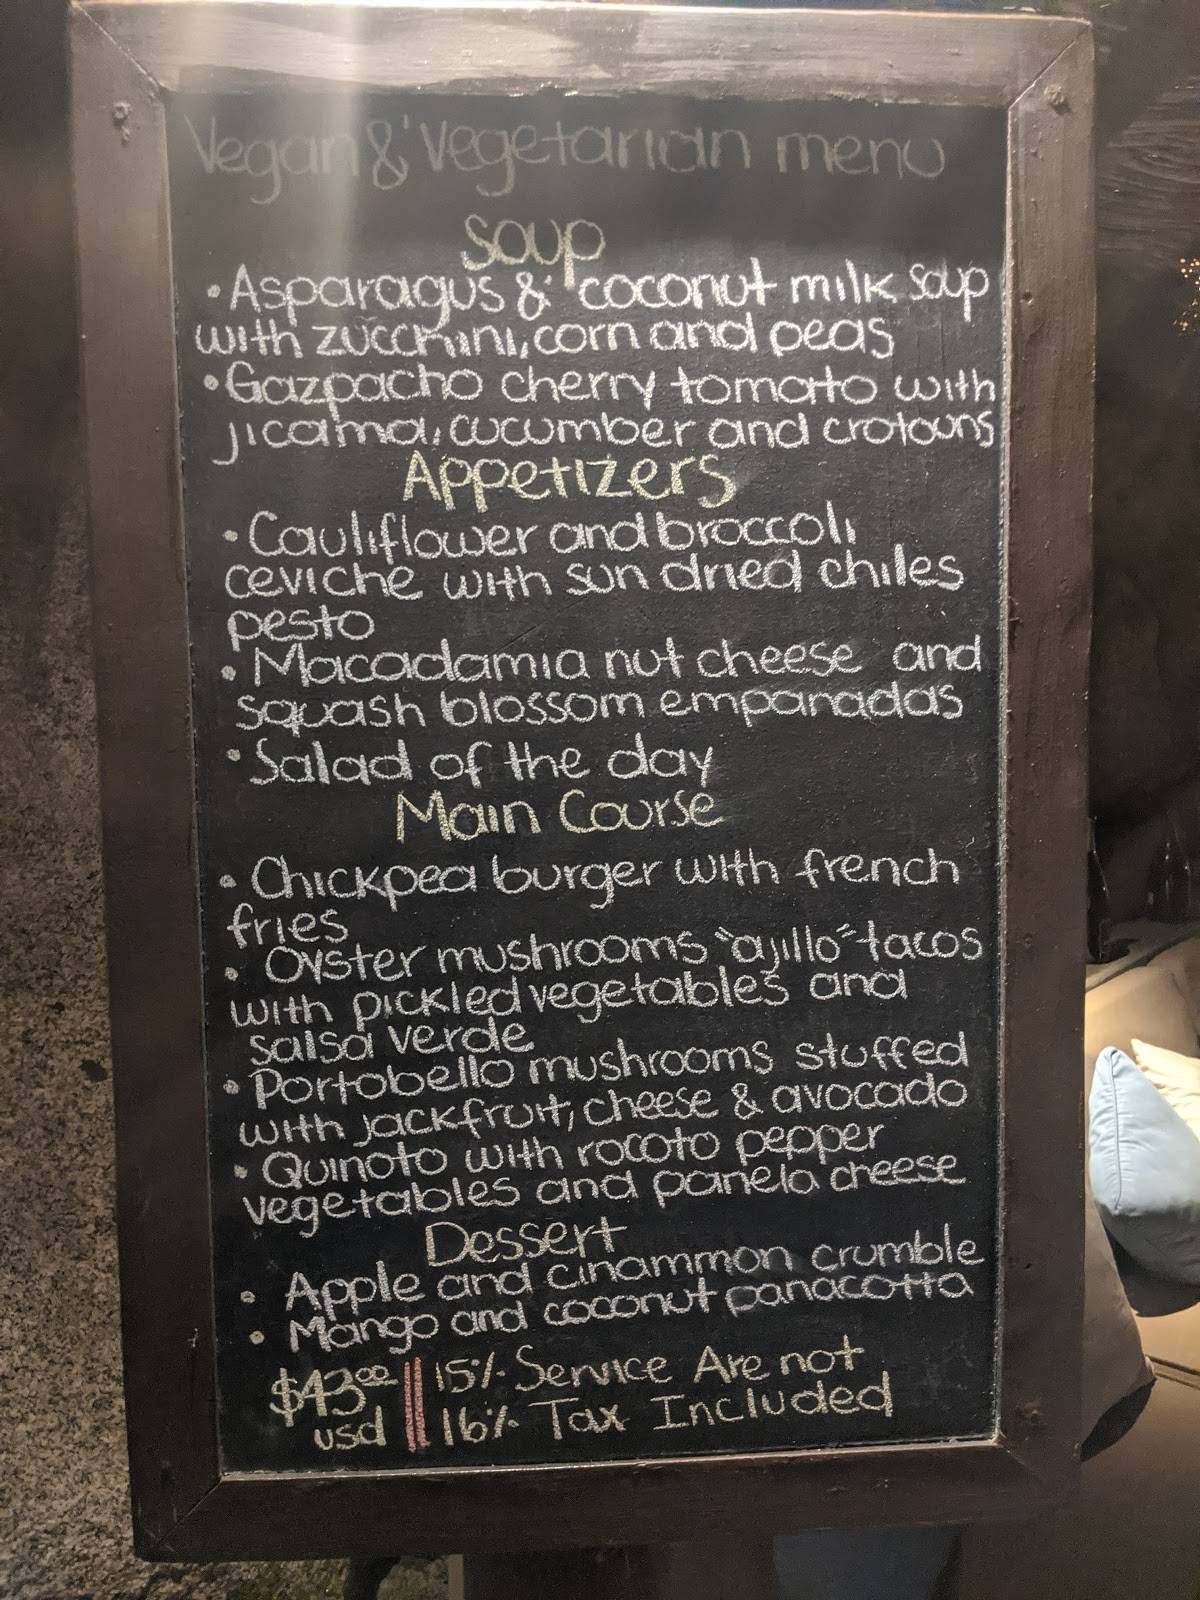 Vegan & Vegetarian menu
Soup
• Asparagus & coconut milk soup
with zucchini, corn and peas
• Gazpacho cherry tomato with
jicama, cucumber and crotouns
Appetizers
• Cauliflower and broccoli
ceviche with sun dried chiles
pesto
• Macadamia nut cheese and
squash blossom empanadas
• Salad of the day
Main Course
• Chickpea burger with french
fries
• Oyster mushrooms "ajillo" tacos
with pickled vegetables and
salsa verde
• Portobello mushrooms stuffed
with jackfruit, cheese & avocado
• Quinoto with rocoto pepper
vegetables and panela cheese
Dessert
• Apple and cinammon crumble
• Mango and coconut panacotta
$43.00 || 15% Service Are not
usd || 16% Tax Included